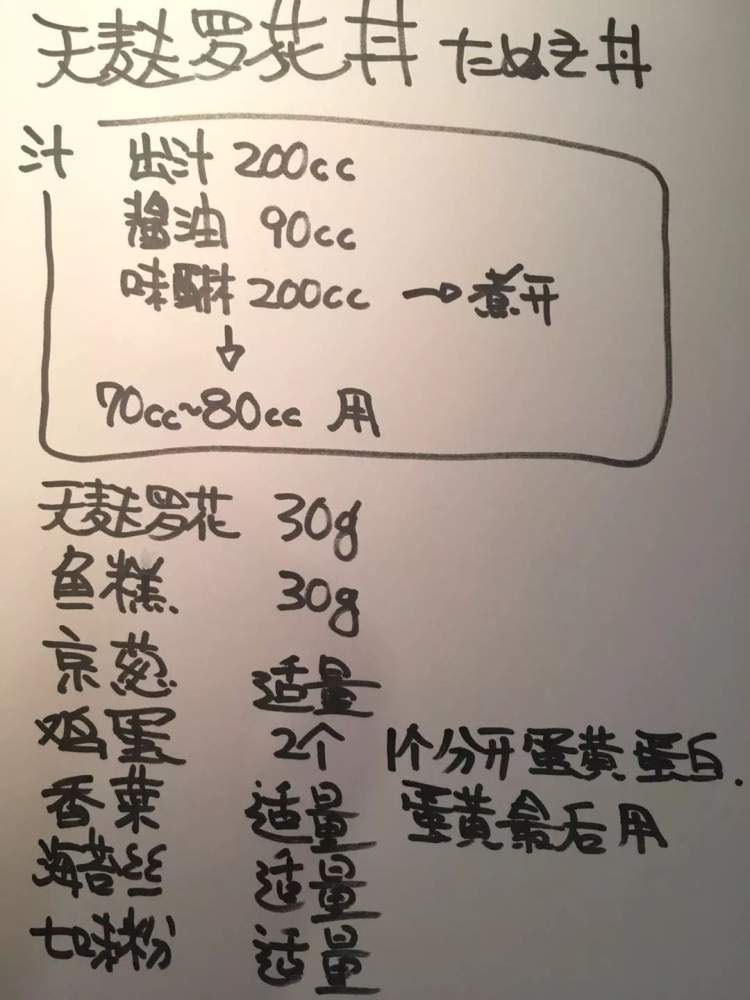 天麸罗花丼 たぬき丼
汁 出汁 200cc
酱油 90cc
味醂 200cc → 煮开
↓
70cc~80cc 用
天麸罗花 30g
鱼糕 30g
京葱 适量
鸡蛋 2个 1个分开蛋黄蛋白.
香菜 适量 蛋黄最后用
海苔丝 适量
七味粉 适量